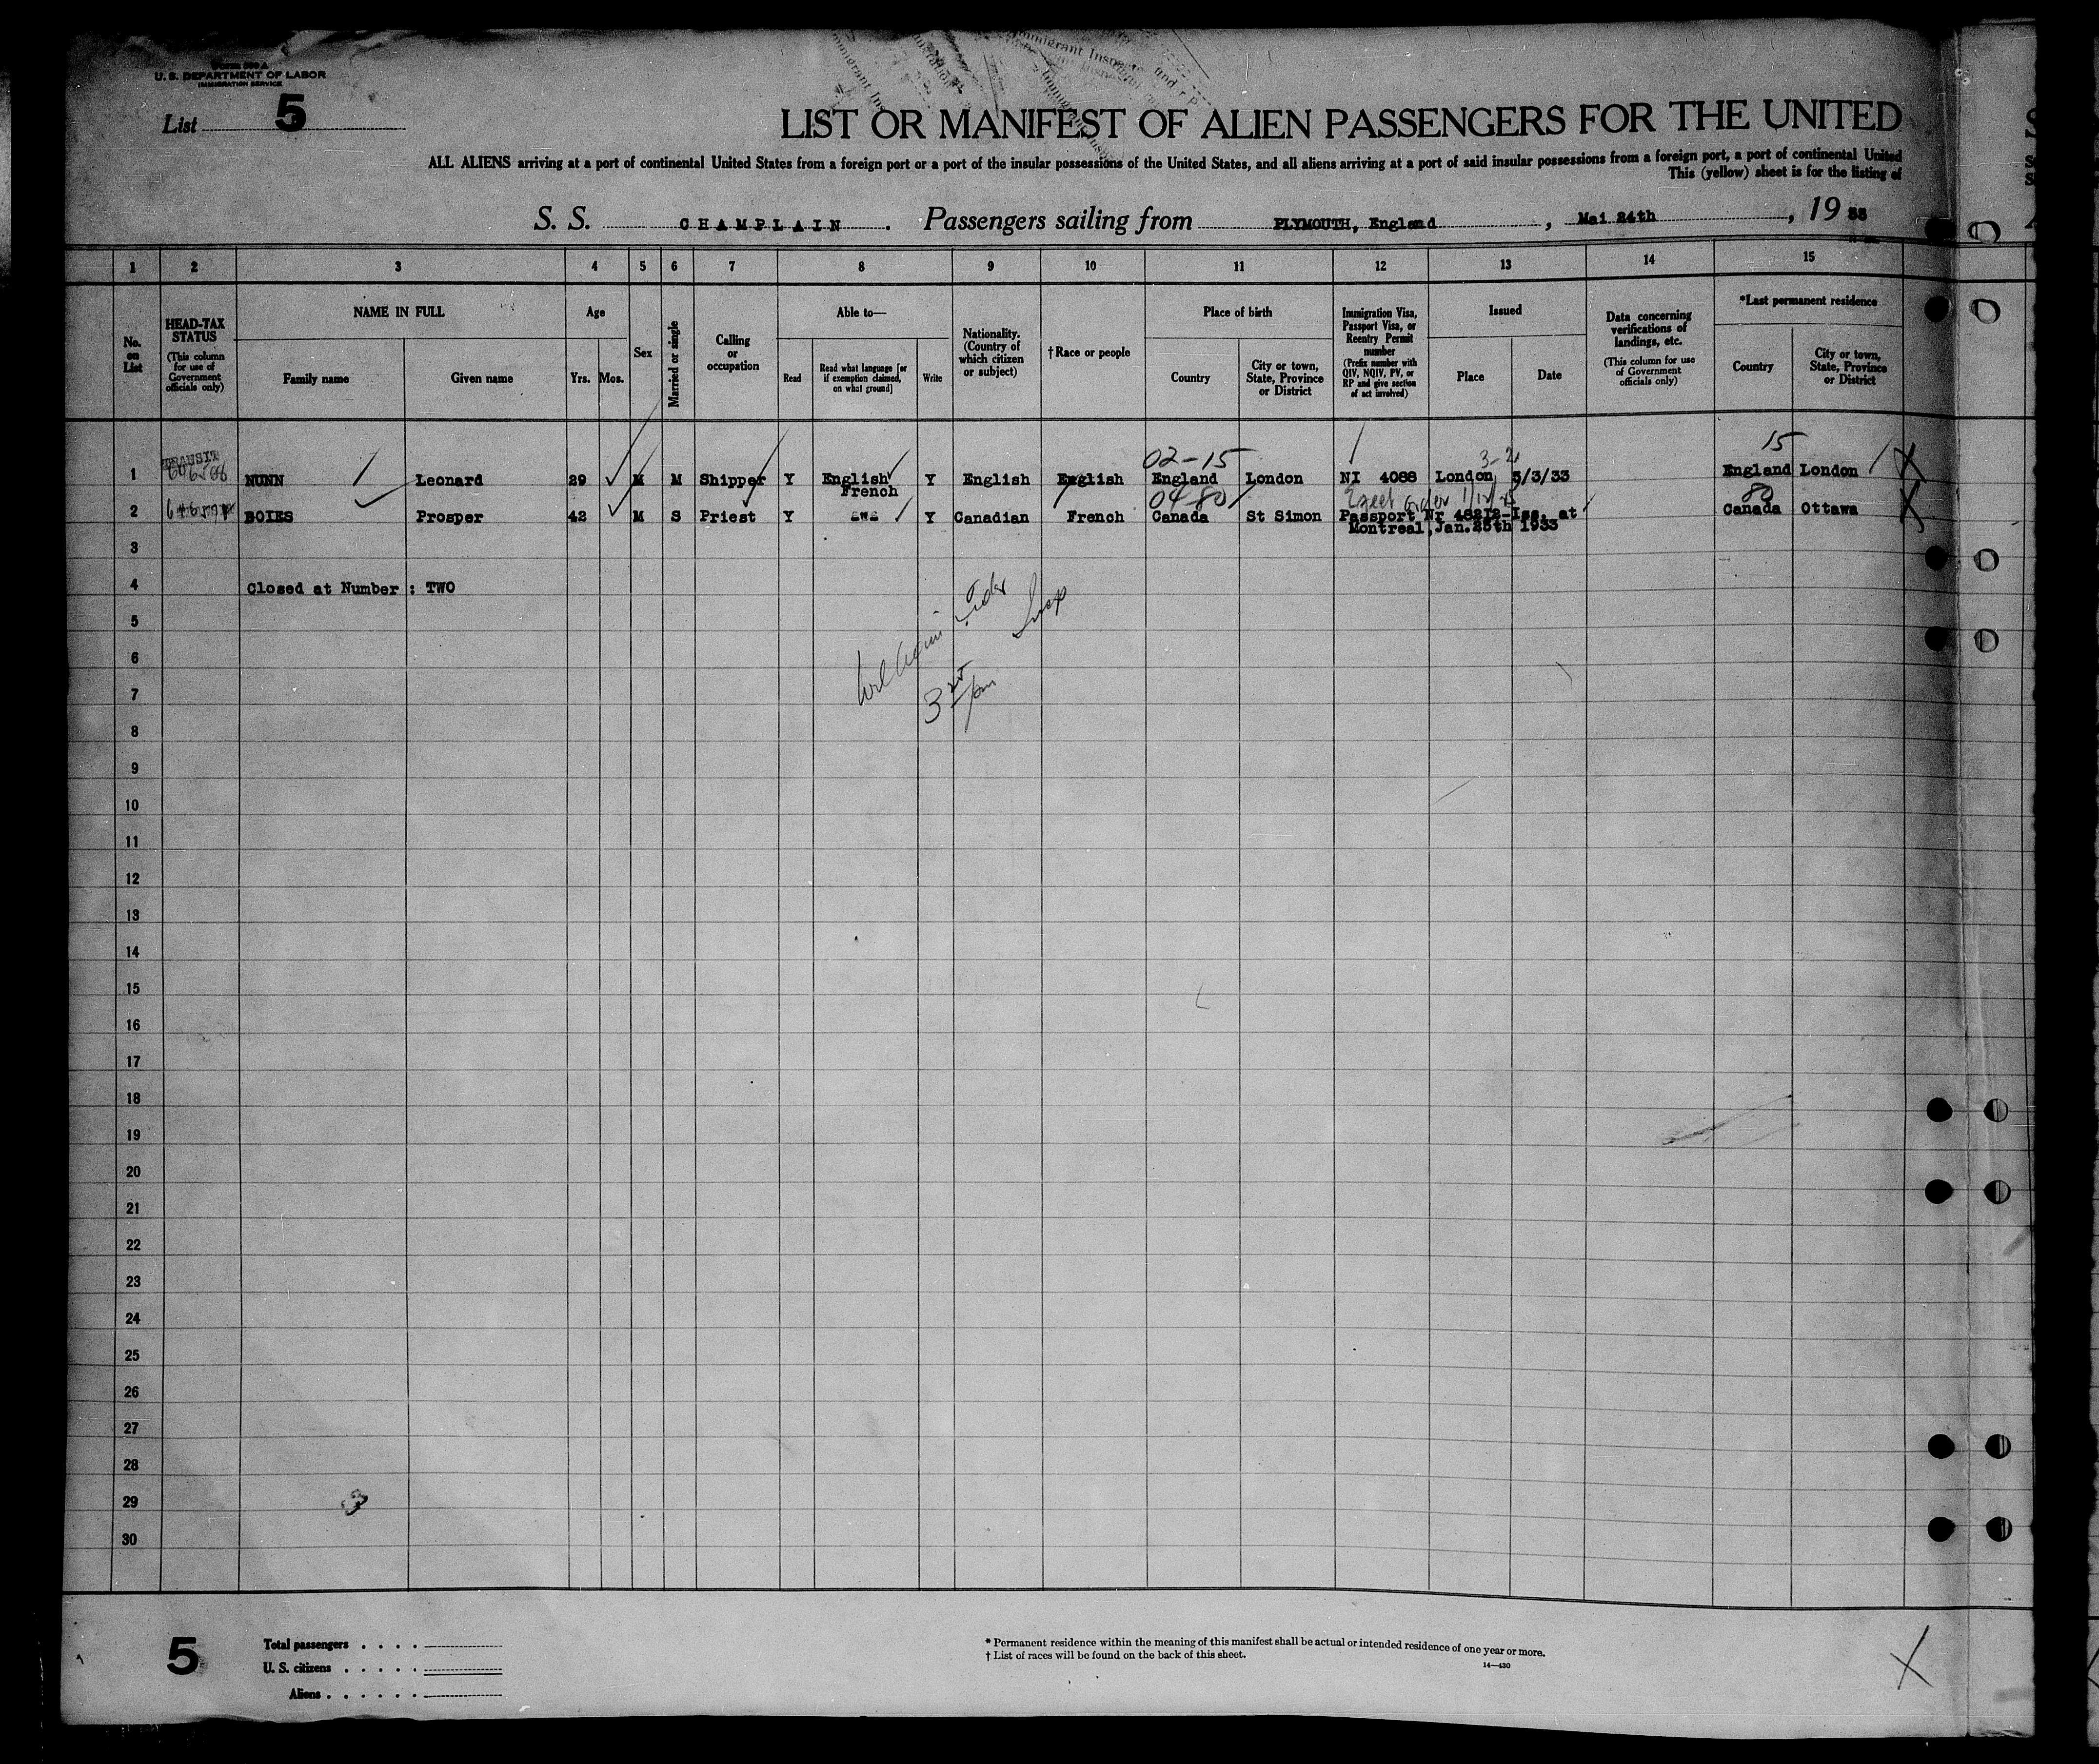 U. S. DEPARTMENT OF LABOR
IMMIGRATION SERVICE
List 5
LIST OR MANIFEST OF ALIEN PASSENGERS FOR THE UNITED
ALL ALIENS arriving at a port of continental United States from a foreign port or a port of the insular possessions of the United States, and all aliens arriving at a port of said insular possessions from a foreign port, a port of continental United
This (yellow) sheet is for the listing of
S. S. CHAMPLAIN. Passengers sailing from PLYMOUTH, England, Mai 24th, 1933
1 2 3 4 5 6 7 8 9 10 11 12 13 14 15
No. on List
HEAD-TAX STATUS
(This column for use of Government officials only)
NAME IN FULL
Family name
Given name
Age
Yrs.
Mos.
Sex
Married or single
Calling or occupation
Able to—
Read
Read what language [or if exemption claimed, on what ground]
Write
Nationality. (Country of which citizen or subject)
†Race or people
Place of birth
Country
City or town, State, Province or District
Immigration Visa, Passport Visa, or Reentry Permit number
(Prefix number with QIV, NQIV, PV, or RP and give section of act involved)
Issued
Place
Date
Data concerning verifications of landings, etc.
(This column for use of Government officials only)
*Last permanent residence
Country
City or town, State, Province or District
TRANSIT
02-15
3-2
15
1 NUNN Leonard 29 M M Shipper Y English Y English English England London NI 4088 London 5/3/33 England London
French
04-80
80
2 BOIES Prosper 42 M S Priest Y Y Canadian French Canada St Simon Passport Nr 48212-Iss. at Canada Ottawa
Montreal, Jan. 25th 1933
3
4 Closed at Number : TWO
5
6
7
8
9
10
11
12
13
14
15
16
17
18
19
20
21
22
23
24
25
26
27
28
29
30
5
Total passengers
U. S. citizens
Aliens
* Permanent residence within the meaning of this manifest shall be actual or intended residence of one year or more.
† List of races will be found on the back of this sheet.
14—430